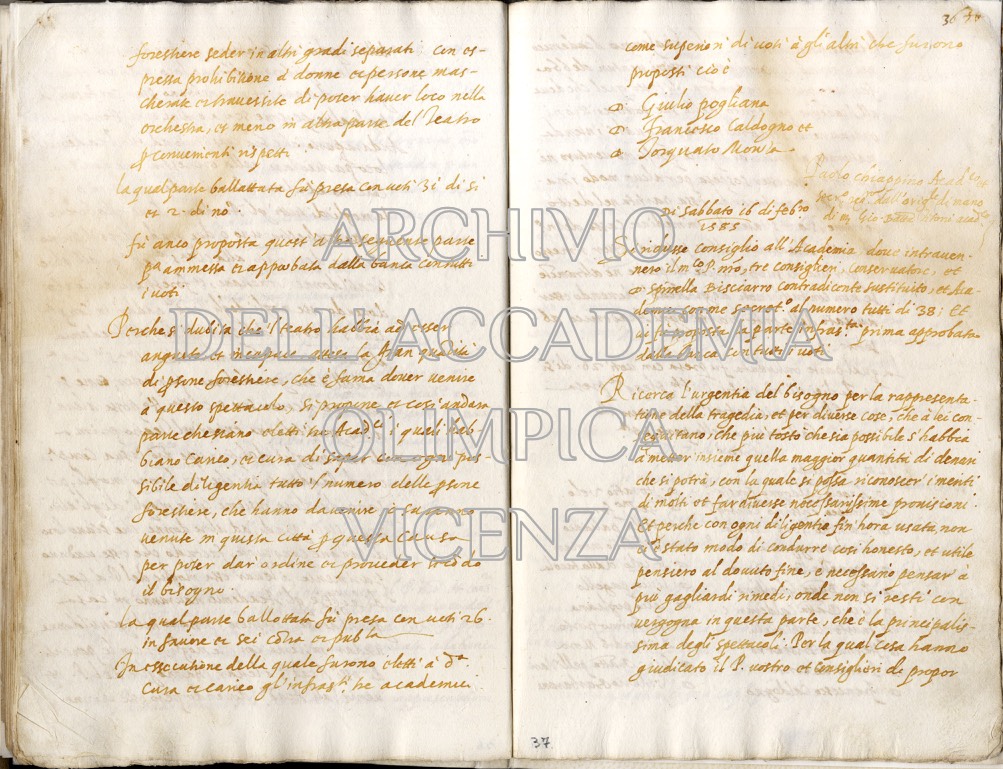 forestiere seder in altri gradi separati con es-
pressa prohibitione à donne et persone mas-
cherate et travestite di poter haver loco nella
orchestra, et meno in altra parte del Teatro
convenienti rispetti
la qual parte ballottata fù presa con voti 31 di si
et 2 di nò
fù anco proposta quest'altra seguente parte
pª ammessa et approbata dalla banca con tutti
i voti
Perche si dubita che 'l teatro habbia ad esser
angusto et incapace attesa la gran quantità
di psone forestiere, che è fama dover venire
a questo spettacolo si propone et così andarà
parte che siano eletti tre Acad.ci i quali hab-
biano carico, et cura di saper con ogni pos-
sibile diligentia tutto 'l numero delle psone
forestiere, che hanno da venire ò saranno
venute in questa città p questa causa
per poter dar ordine et proveder secodo
il bisogno
la qual parte ballottata fù presa con voti 26
in favore et sei contra et publ.ta
In essecutione della quale furono eletti à d.ta
cura et carico gl'infras.ti tre academici
36
come superiori di voti à gl'altri che furono
proposti cioè
Giulio pogliana
Francesco Caldogno et
Torquato Monza
Paolo chiappino Acad.co et
Di Sabbato 16 di feb.ro
1585
Si ridusse consiglio all'Academia dove intraven-
nero il m.co P. nro, tre consiglieri, conservatore, et
Spinella Bisciarro contradicente sustituito, et Aca-
demici con me secret.o al numero tutti di 38; Et
vi fù proposta la parte infras.ta prima approbata
dalla banca con tutti i voti
Ricerca l'urgentia del bisogno per la rappresenta-
tione della tragedia, et per diverse cose, che à lei con-
seguitano, che più tosto che sia possibile s'habbia
à metter insieme quella maggior quantità di denari
che si potrà, con la quale si possa riconoscer i meriti
di molti et far diverse necessariissime provisioni.
Et perche con ogni diligentia fin'hora usata non
ci è stato modo di condurre così honesto, et utile
pensiero al dovuto fine, è necessario pensar à
più gagliardi rimedi, onde non si resti con
vergogna in questa parte, che è la principalis-
sima degli spettacoli. Per la qual cosa hanno
giudicato il P. vostro et Consiglieri de propor
37
ARCHIVIO
DELL'ACCADEMIA
OLIMPICA
VICENZA